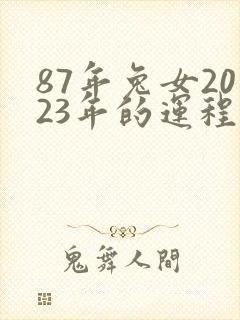 87年兔女20
23年的運程
鬼舞人間